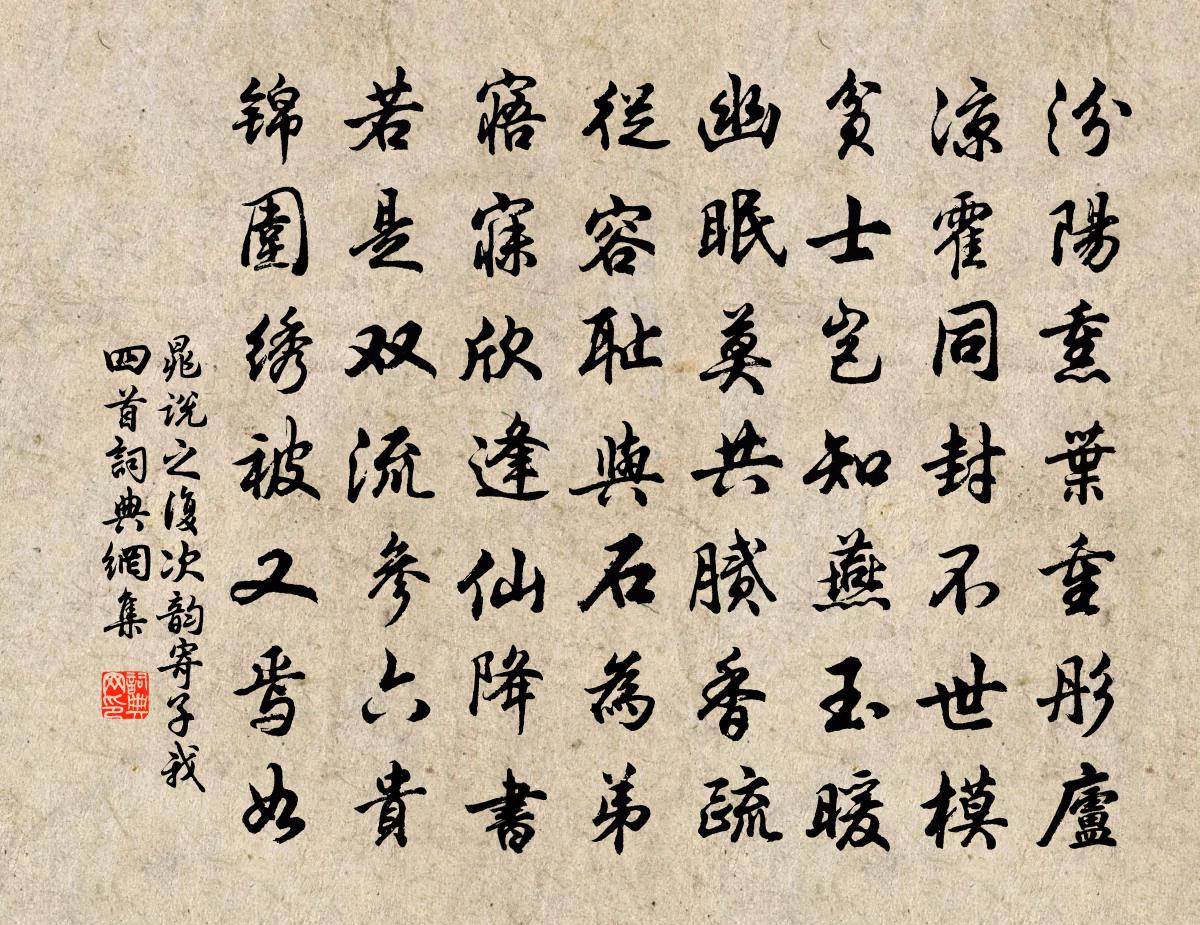 汾陽熏葉重彤廬
涼霍同封不世模
貧士豈知燕玉暖
幽眠莫共膩香疏
從容耻與石為弟
寤寐欣逢仙降書
若是双流參六貴
锦圍绣被又焉如
晁说之復次韵寄子我
四首詞典網集
詞典网印